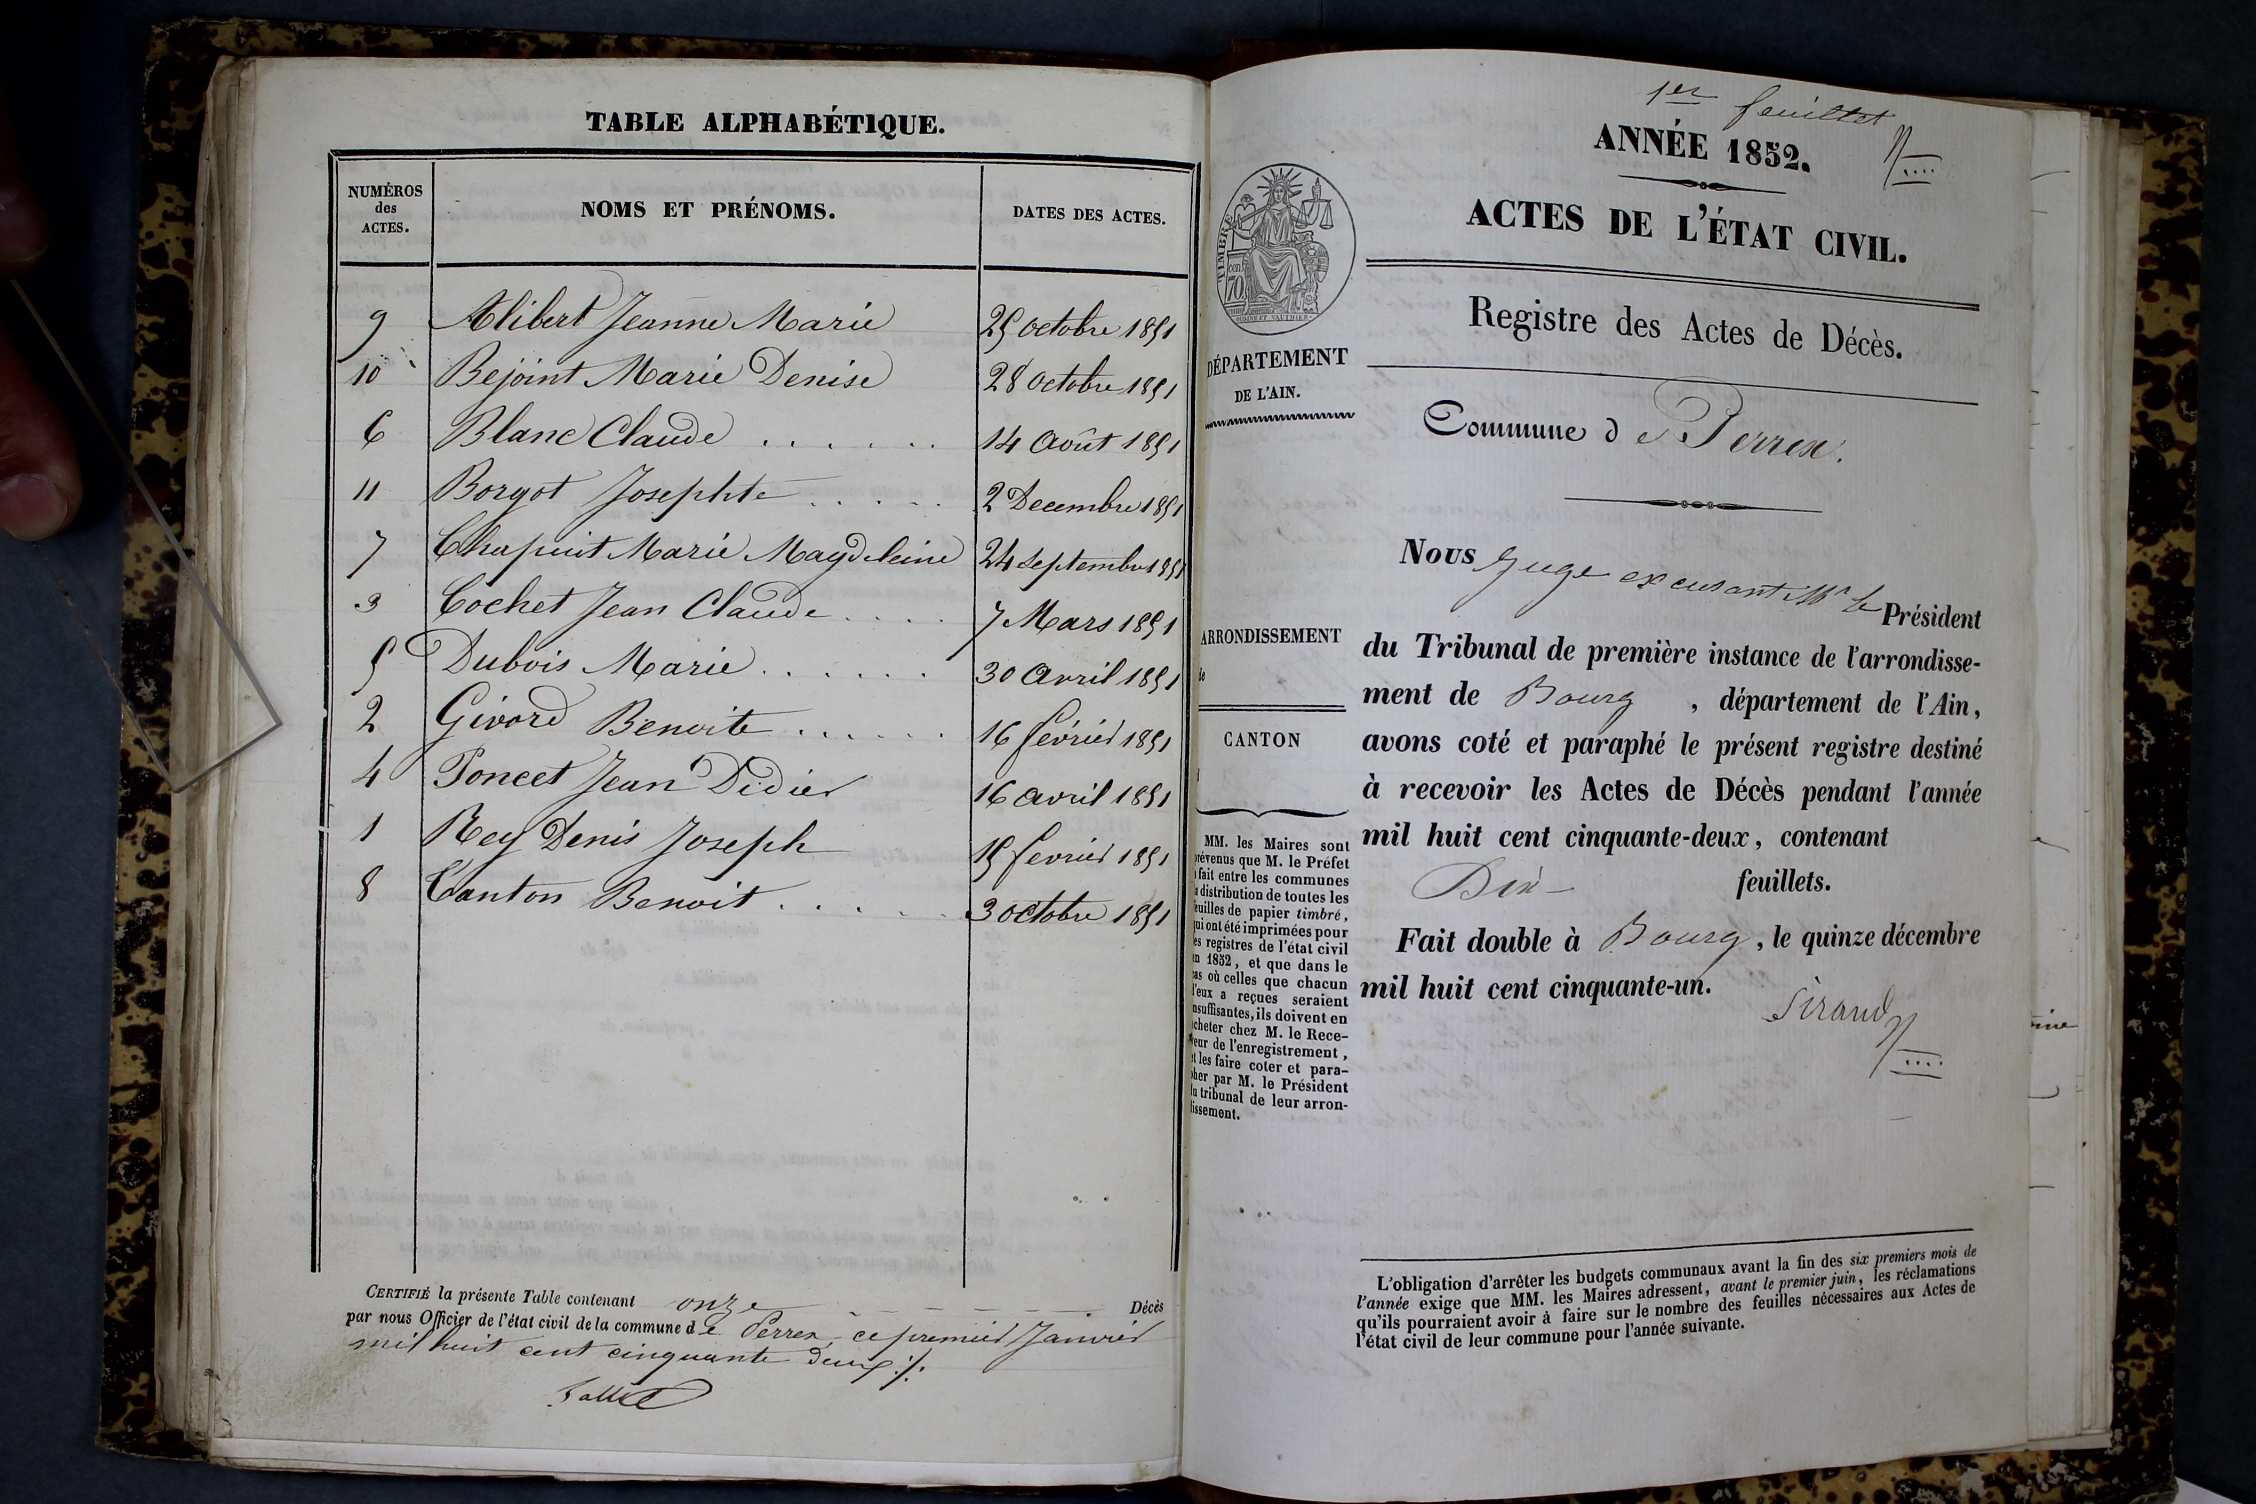 TABLE ALPHABÉTIQUE.
NUMÉROS des ACTES. NOMS ET PRÉNOMS. DATES DES ACTES.
9 Alibert Jeanne Marie 25 octobre 1851
10 Bejoint Marie Denise 28 octobre 1851
6 Blanc Claude . . . . . . 14 Août 1851
11 Borgot Josephte . . . . . 2 Decembre 1851
7 Chapuit Marie Magdeleine 24 septembre 1851
3 Cochet Jean Claude . . . . 7 Mars 1851
5 Dubois Marie . . . . . . 30 Avril 1851
2 Givord Benoite . . . . . . 16 février 1851
4 Poncet Jean Didier 16 avril 1851
1 Rey Denis Joseph 15 fevrier 1851
8 Tanton Benoit . . . . . 3 octobre 1851
CERTIFIÉ la présente Table contenant onze Décès
par nous Officier de l'état civil de la commune de Perrex, ce premier Janvier
mil huit cent cinquante deux ./.
1er feuillet
ANNÉE 1852.
ACTES DE L'ÉTAT CIVIL.
Registre des Actes de Décès.
TIMBRE
70
DÉPARTEMENT
DE L'AIN.
Commune de Perrex.
ARRONDISSEMENT
de
CANTON
MM. les Maires sont
prévenus que M. le Préfet
a fait entre les communes
la distribution de toutes les
feuilles de papier timbré,
qui ont été imprimées pour
les registres de l'état civil
en 1852, et que dans le
cas où celles que chacun
d'eux a reçues seraient
insuffisantes, ils doivent en
acheter chez M. le Rece-
veur de l'enregistrement,
et les faire coter et para-
pher par M. le Président
du tribunal de leur arron-
dissement.
Nous Juge excusant Mr le Président
du Tribunal de première instance de l'arrondisse-
ment de Bourg, département de l'Ain,
avons coté et paraphé le présent registre destiné
à recevoir les Actes de Décès pendant l'année
mil huit cent cinquante-deux, contenant
Dix feuillets.
Fait double à Bourg, le quinze décembre
mil huit cent cinquante-un.
Sirand
L'obligation d'arrêter les budgets communaux avant la fin des six premiers mois de
l'année exige que MM. les Maires adressent, avant le premier juin, les réclamations
qu'ils pourraient avoir à faire sur le nombre des feuilles nécessaires aux Actes de
l'état civil de leur commune pour l'année suivante.